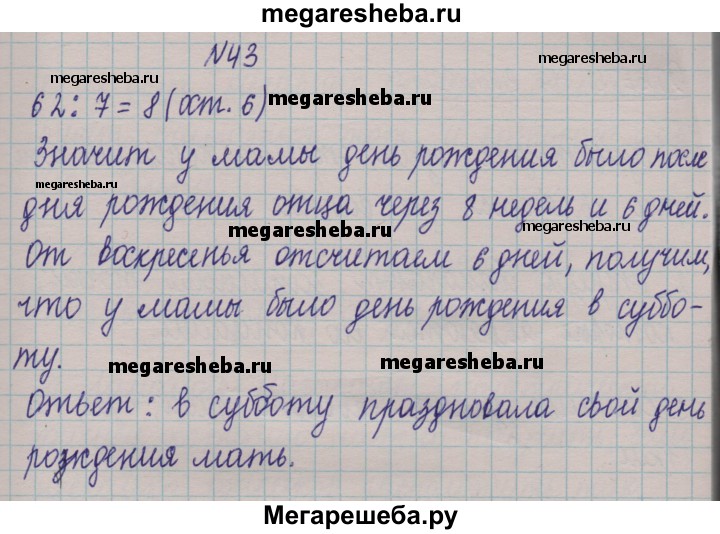 megaresheba.ru
№43
megaresheba.ru
megaresheba.ru
62: 7 = 8 (ост. 6)
megaresheba.ru
Значит у мамы день рождения было после
megaresheba.ru
дня рождения отца через 8 недель и 6 дней.
megaresheba.ru
megaresheba.ru
От воскресенья отсчитаем 6 дней, получим,
что у мамы было день рождения в суббо-
ту.
megaresheba.ru
megaresheba.ru
Ответ: в субботу праздновала свой день
рождения мать.
Мегарешеба.ру